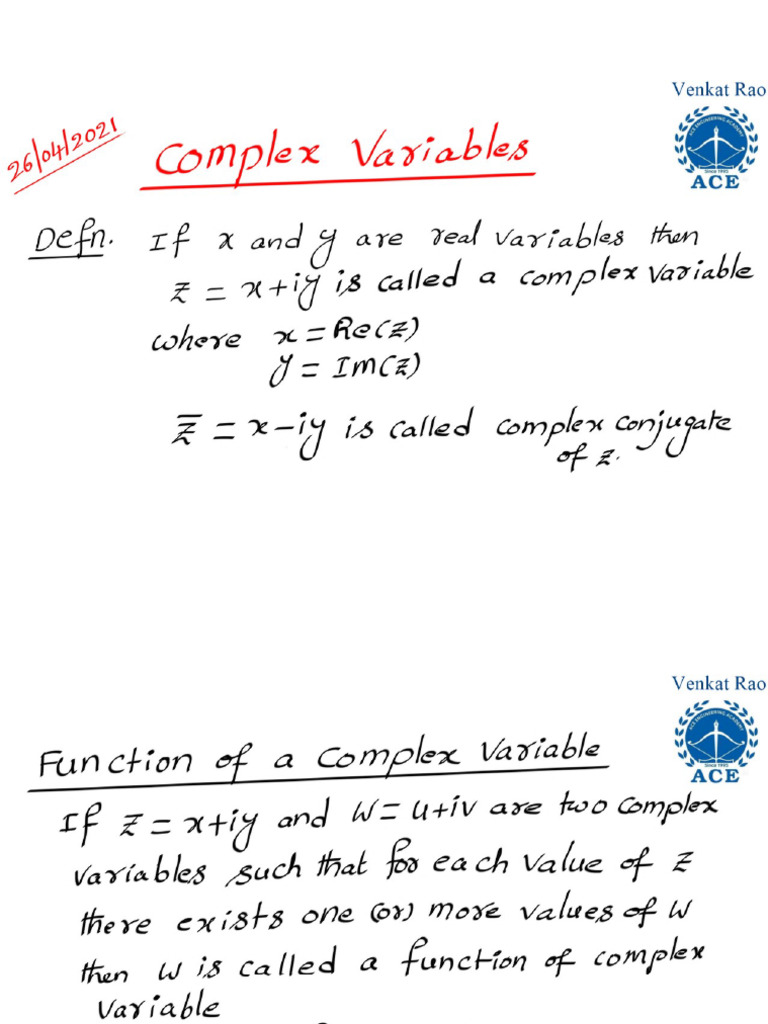 Venkat Rao
26/04/2021
Complex Variables
ACE ENGINEERING ACADEMY
Since 1995
ACE
Defn. If x and y are real variables then
z = x+iy is called a complex variable
where x = Re(z)
y = Im(z)
z̅ = x-iy is called complex conjugate
of z.
Venkat Rao
Function of a Complex Variable
ACE ENGINEERING ACADEMY
Since 1995
ACE
If z = x+iy and w = u+iv are two complex
variables such that for each value of z
there exists one (or) more values of w
then w is called a function of complex
variable